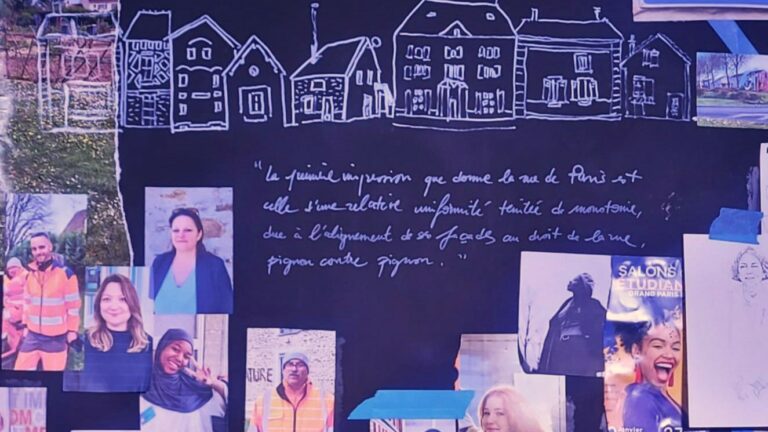 "La première impression que donne la rue de Paris est
celle d'une relative uniformité teintée de monotonie,
due à l'alignement de ses façades au droit de la rue,
pignon contre pignon."
SALON
ÉTUDIAN
GRAND PARIS
ATURE